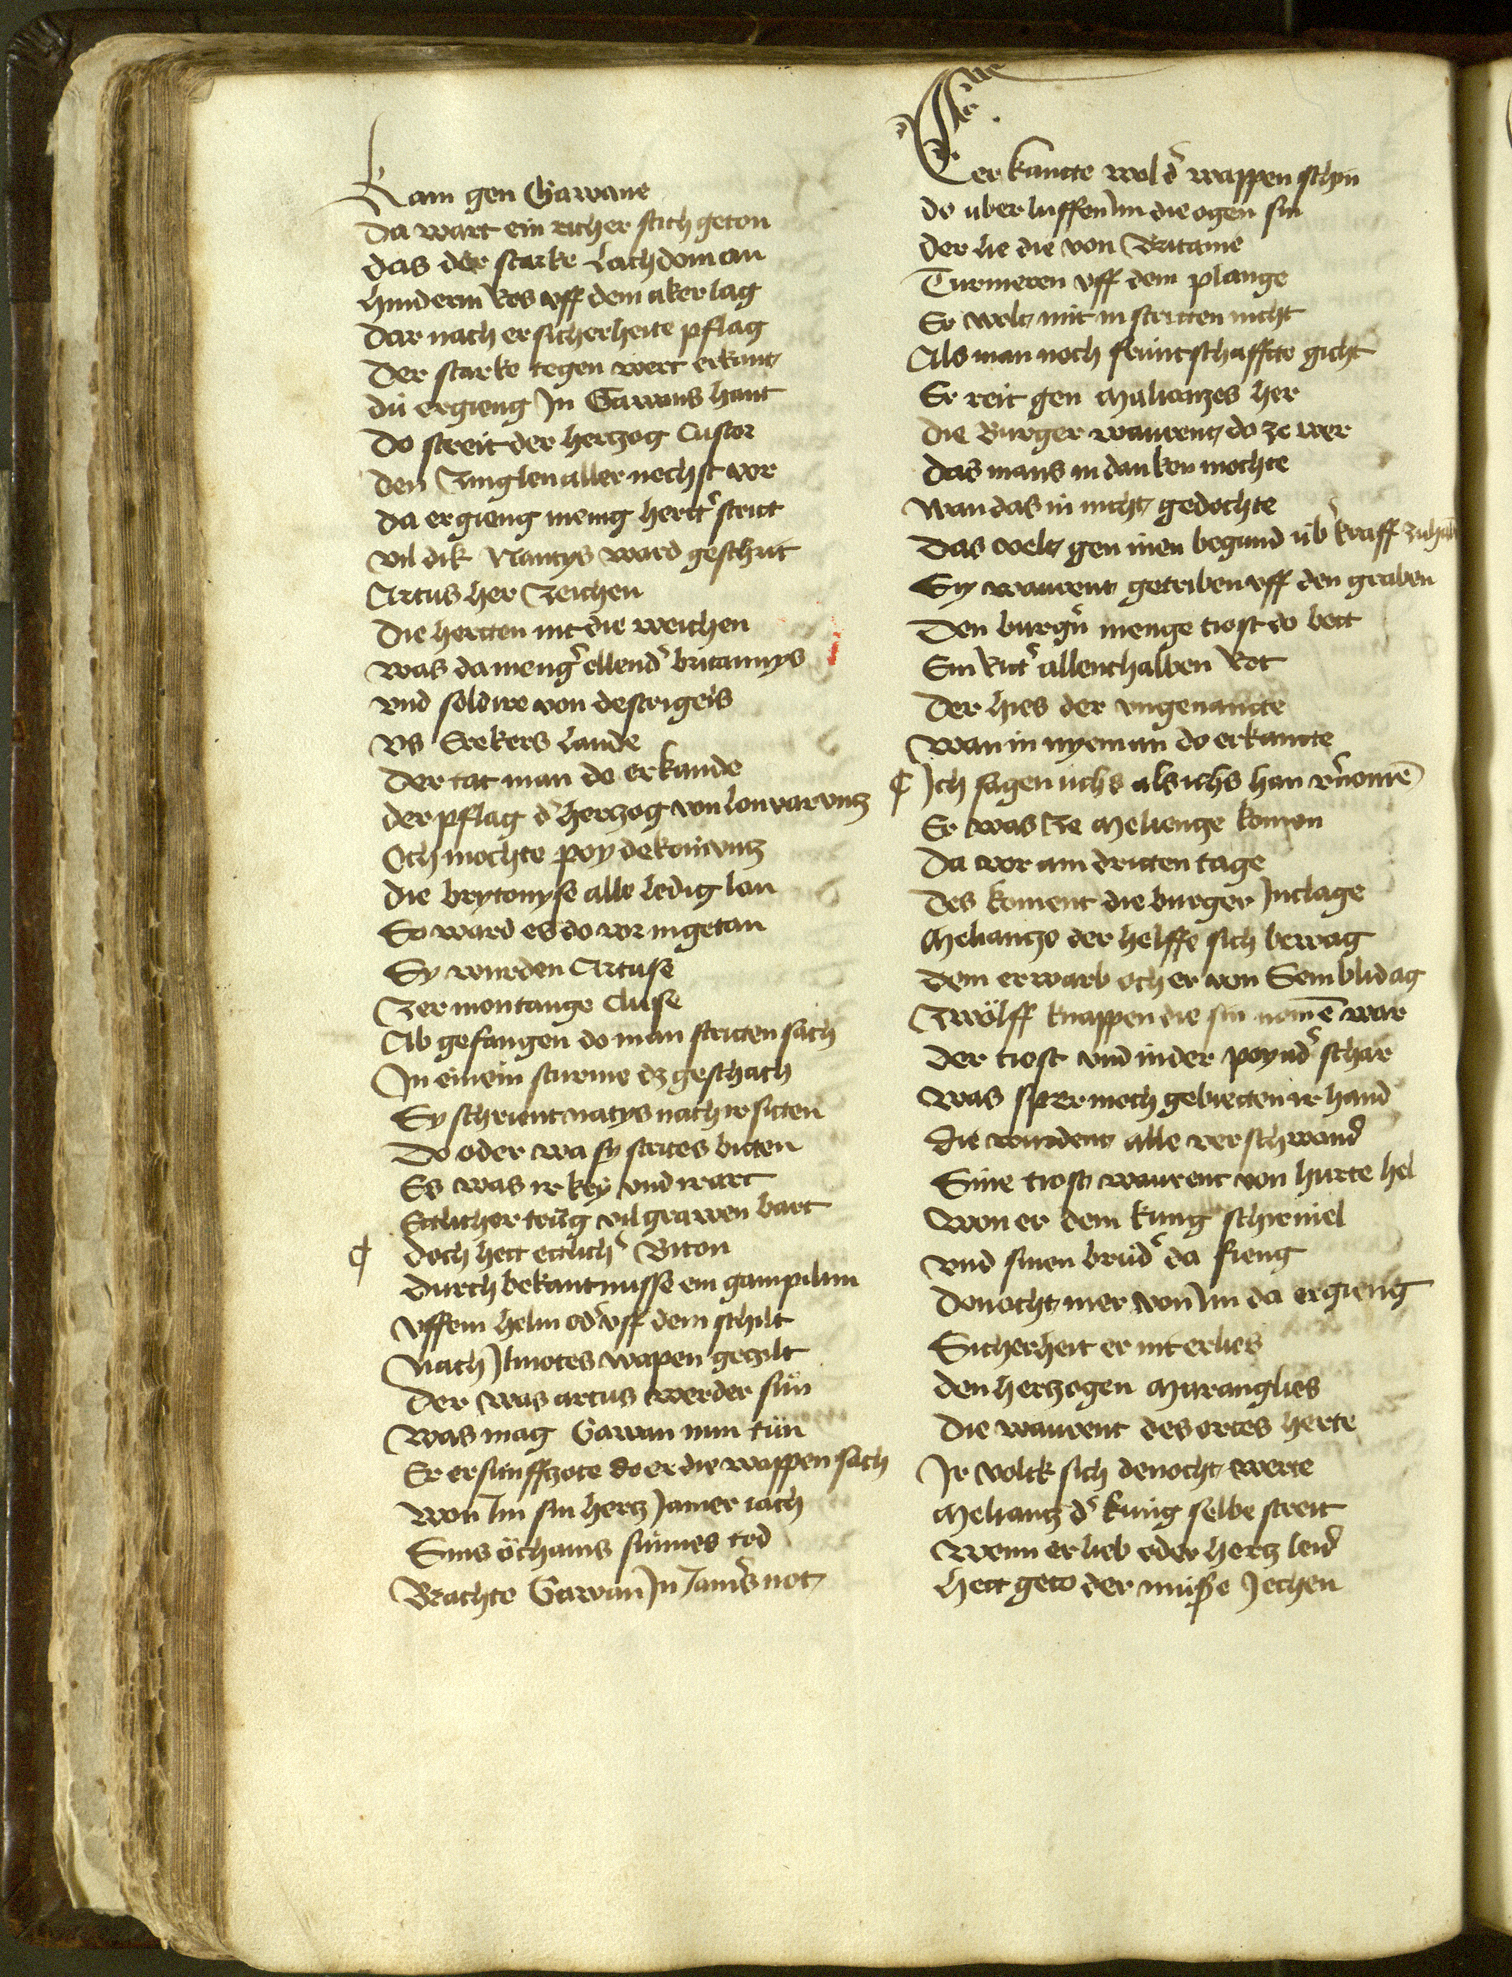 Kam gen Gawane
Da wart ein richer stich geton
das der starke Lachdoman
hinderm Ros vff dem aker lag
Dar nach er sicherheite pflag
Der starke tegen wert erkant
dú ergieng Jn Gawans hant
Do streit der hertzog Castor
den Jnglen aller nechst vor
da ergieng menig hertt' stritt
vil dik Nantys ward geschrit
Artus her Zeichen
Die hertten nit die weichen
was da meng' ellend' britannys
vnd soldire von destrigeis
Vs Erekers Lande
Der tat man do erkande
der pflag d' hertzog von Lonvaruntz
Och mochte poy dekonúntz
die brytonyse alle ledig lan
So ward es do vor in getan
Sy wurden Artuse
Zer montange Cluse
Ab gefangen do man stritten sach
Jn einem sturme dz geschach
Sy schrient natys nach ir sitten
Do oder wa sy strites biten
Es was ir krÿ vnd ir art
Ettlicher trúg vil grawen bart
¶ Doch hett ettlich' Briton
durch bekantnusse ein gampilun
vffem helm od' vff dem schilt
Nach Jlinotes wapen gezilt
Der was artus werder sun
Was mag Gawan nun tún
Er ersúnffzote do er die wappen sach
won Jm sin hertz Jamer iach
Sins öchaims súnnes tod
Brachte Gawan Jn Jam's not
Er kantte wol d' wappen schyn
do uber luffen Jm die ogen sin
der lie die von Britanie
Turnieren vff dem plange
Er wolt mit in stritten nicht
Als man noch frúntschaffte gicht
Er reit gen Maliantzes her
die Burger warent do ze wer
das mans in danken mochte
wan das in nicht gedochte
Das velt gen inen begund úb' kraff zu hab
Sy warent getriben vff den graben
Den burg'n menge tiost do bott
Ein Ritt' allenthalben Rot
Der hies der vngenantte
wan in nyeman do erkantte
¶ Jch sagen úchs als ichs han v'nomē
Er was Ze Melientze komen
Da vor am dritten tage
des koment die burger Jn clage
Meliantze der helffe sich bewag
dem erwarb och er von Semblidag
Zwölff knappen die sin nomē war
der tiost vnd in der poynd' schar
was sper moch gebietten ir hand
die wurdent alle verschwand
Sine tiost warent von hurte hel
won er dem kung schirniel
vnd sinen brúd' da fieng
Donocht mer von Jm da ergieng
Sicherheit er nit erlies
den hertzogen Maranglies
Die warent des ortes herte
Jr volck sich denocht werte
Meliantz d' kúng selbe streit
Wenn er lieb oder hertz leid
hett geto der muße Jechen